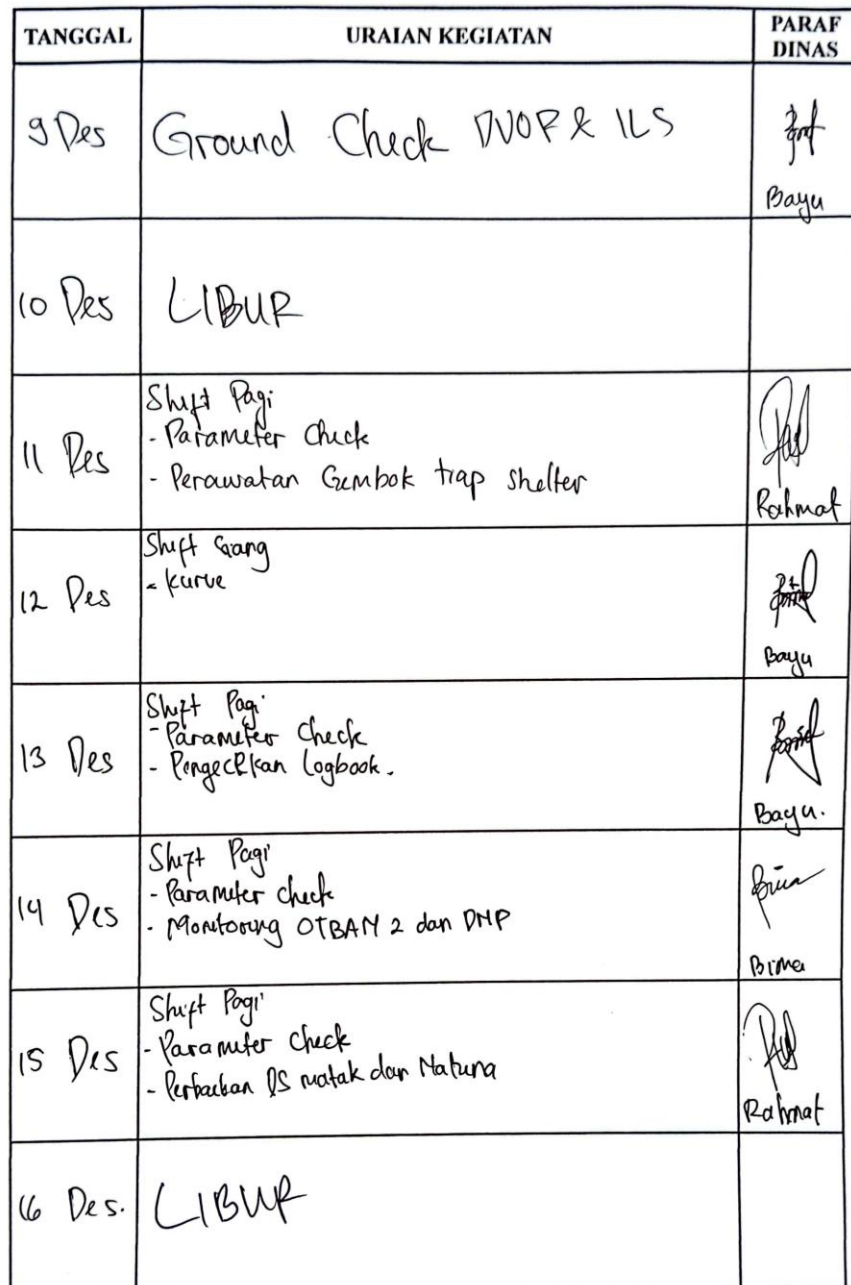 TANGGAL URAIAN KEGIATAN PARAF DINAS
9 Des Ground Check DVOR & ILS
Bayu
10 Des LIBUR
Shift Pagi
- Parameter Check
11 Des
- Perawatan Gembok trap shelter
Rahmat
Shift Siang
- Kurve
12 Des
Bayu
Shift Pagi
- Parameter Check
13 Des
- Pengecekan Logbook.
Bayu.
Shift Pagi
- Parameter check
14 Des
- Monitoring dan
Bima
Shift Pagi
- Parameter check
15 Des
- Perbaikan DS matak dan Natuna
Rahmat
16 Des. LIBUR